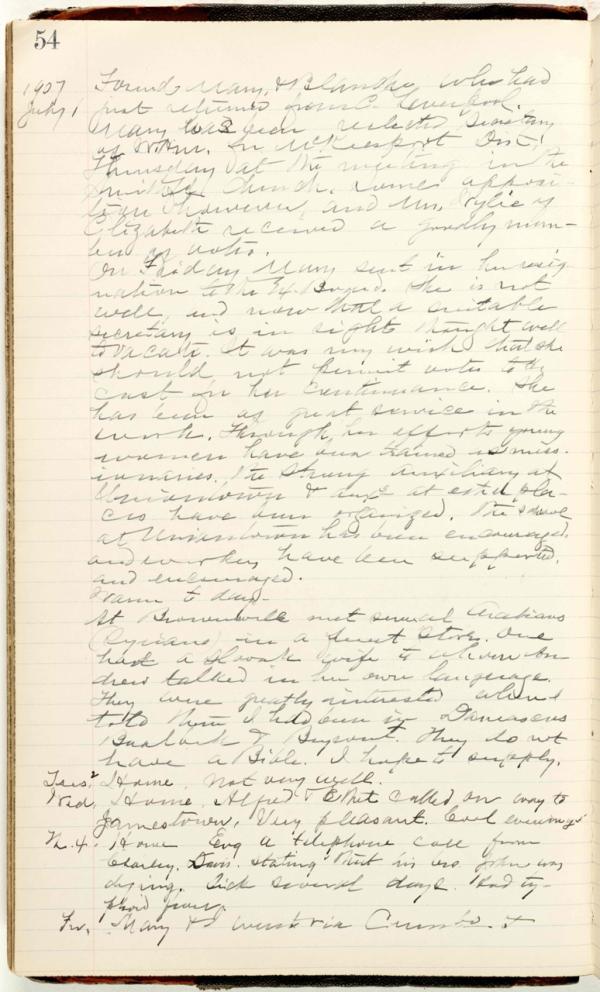 54
1907 Found Mary & Blanche who had
July 1 just returned from E. Liverpool.
Mary has been reelected Secretary
of W.M.S. in McKeesport Dist.
Thursday at the meeting in the
church. Some opposi-
tion however, and Mrs. Wylie of
Elizabeth received a goodly num-
ber of votes.
On Friday Mary sent in her resig-
nation to the Board. She is not
well, and now that a suitable
secretary is in sight thought well
to vacate. It was my wish that she
should not permit votes to be
cast for her continuance. She
has been of great service in the
work. Through her efforts young
women have been trained as miss-
ionaries. The strong auxiliary at
Uniontown & at other pla-
ces have been organized. The school
at Uniontown has been encouraged,
and workers have been supported,
and encouraged.
Warm to day.
At Brownsville met several Arabians
(Syrians) in a fruit store. One
had a Slovak wife to whom An-
drew talked in her own language.
They were greatly interested when I
told them I had been in Damascus
Baalbek & Beyrout. They do not
have a Bible. I hope to supply.
Tues. 2 Home. Not very well.
Wed. Home. Alfred & called on way to
Jamestown, Very pleasant. Cool evenings
Th. 4. Home Eve a telephone call from
Charley Davis stating that his bro John was
dying. Sick several days. Had ty-
phoid fever.
Fri. Mary & I went via &